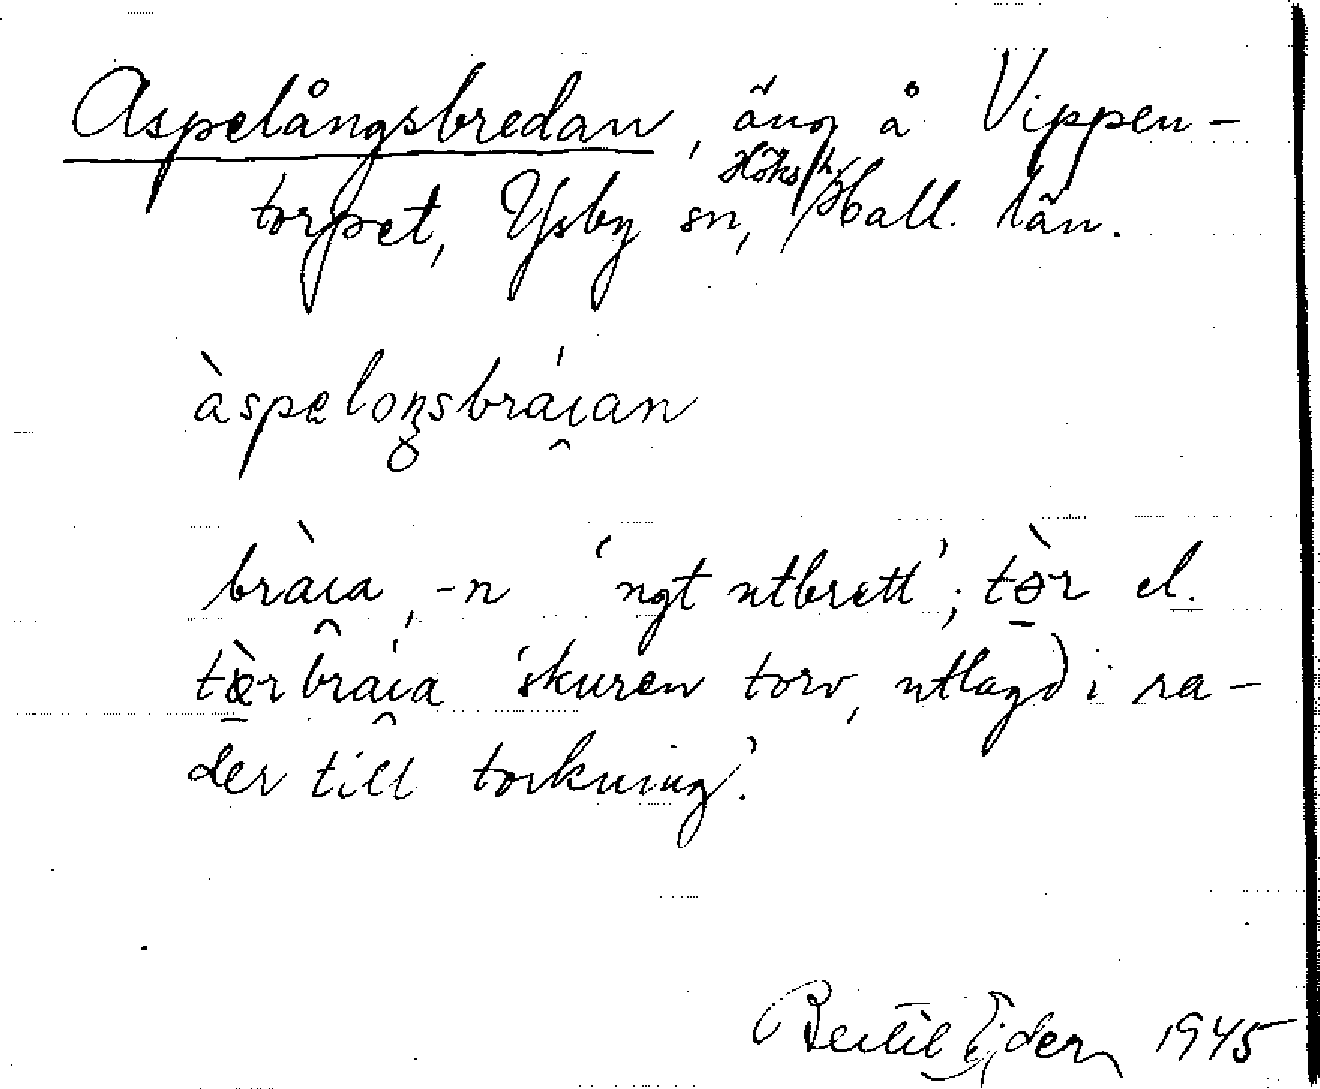 Aspelångsbredan, äng å Vippen-
Höks h.
torpet, Ysby sn, Hall. län.
àspeloŋsbráian
bràia, -n 'ngt utbrett'; tær el.
tærbraia 'skuren torv, utlagd i ra-
der till torkning'.
Bertil Ejder 1945